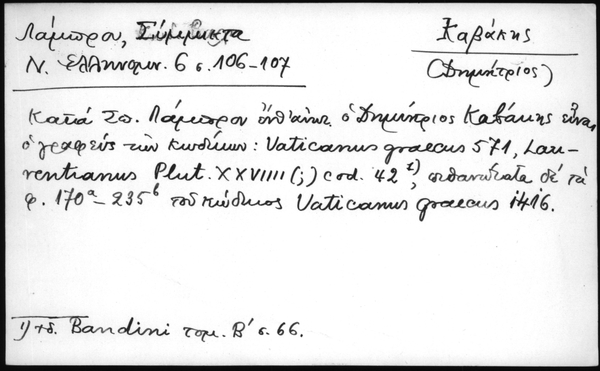 Λάμπρου, Σύμμικτα
Καβάκης
Ν. Ἑλληνομν. 6 σ. 106-107
(Δημήτριος)
Κατὰ Σπ. Λάμπρου ὁ Δημήτριος Καβάκης εἶναι
ὁ γραφεὺς τῶν κωδίκων: Vaticanus graecus 571, Lau-
rentianus Plut. XXVIIII (;) cod. 42 1), πιθανώτατα δὲ τὰ
φ. 170a-235b τοῦ κώδικος Vaticanus graecus 1416.
1) Bandini τομ. Β' σ. 66.